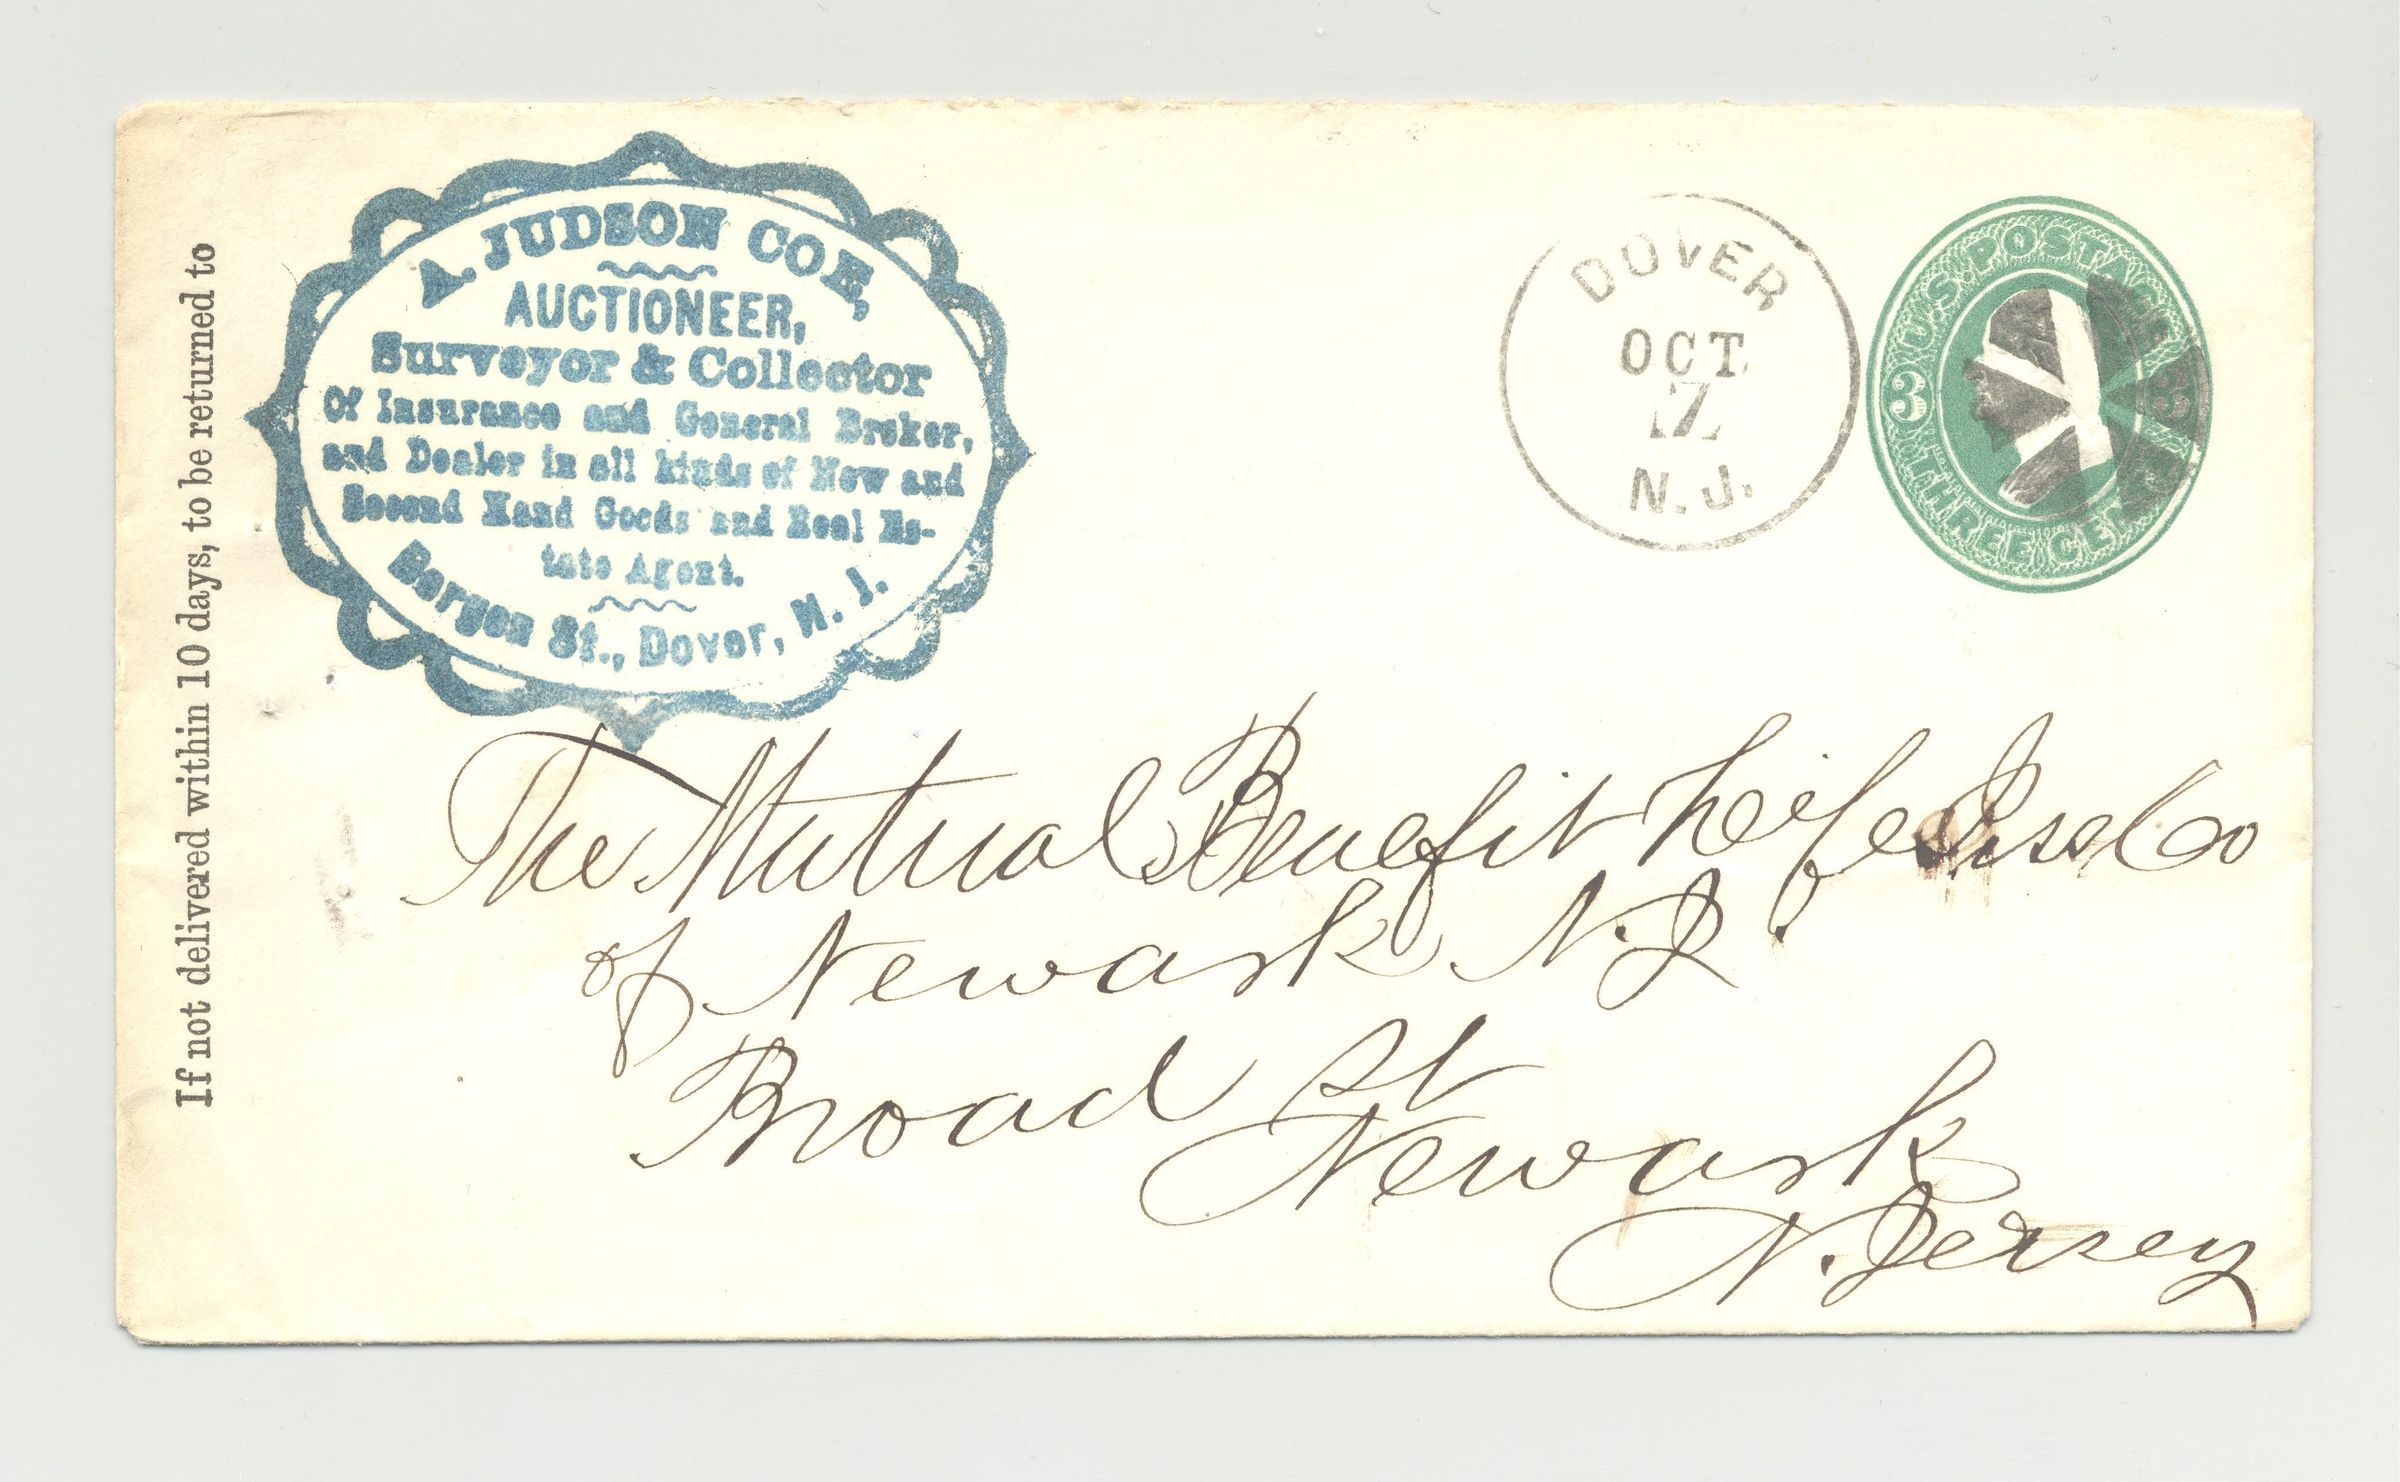 If not delivered within 10 days, to be returned to
A. JUDSON COE,
AUCTIONEER,
Surveyor & Collector
Of Insurance and General Broker,
and Dealer in all kinds of New and
Second Hand Goods and Real Es-
tate Agent.
Bergen St., Dover, N. J.
DOVER
OCT
17
N.J.
U.S. POSTAGE
3 3
THREE CENTS
The Mutual Benefit Life Inse Co
of Newark N.J.
Broad St
Newark
N. Jersey